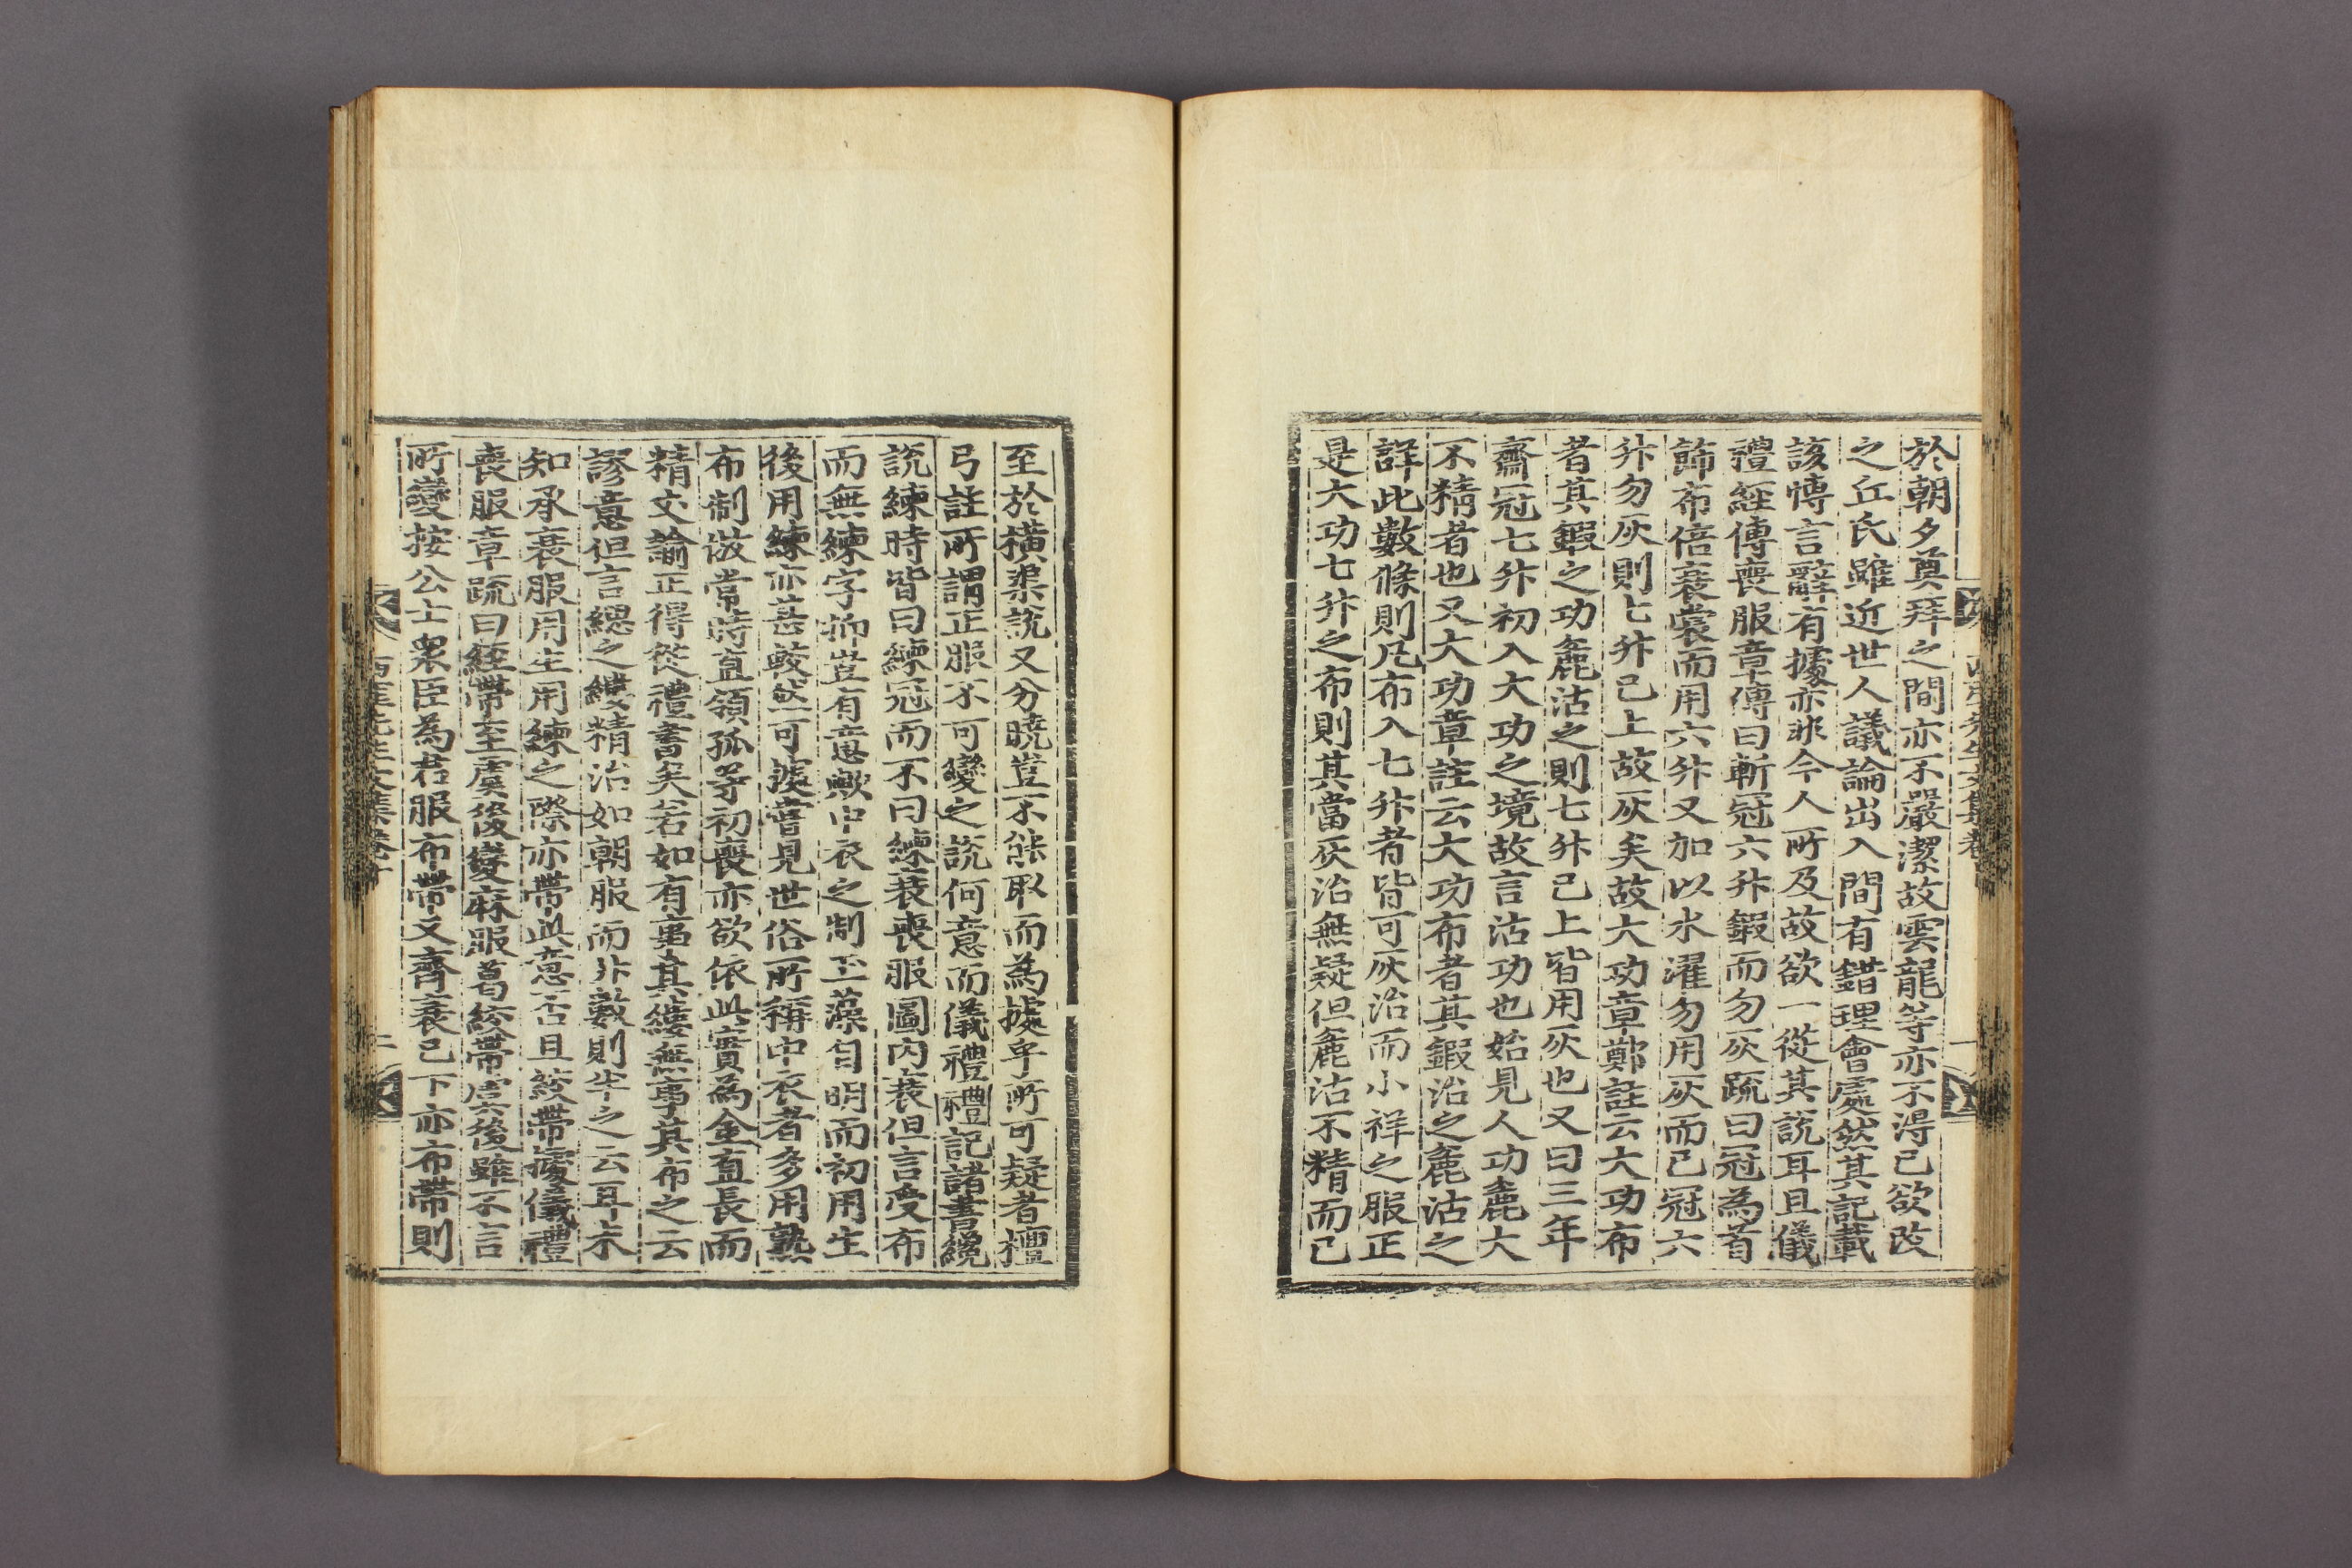 於朝夕奠拜之間亦不嚴潔故雲龍等亦不得已欲改
之丘氏雖近世人議論出入間有錯理會處然其記載
該愽言辭有據亦非今人所及故欲一從其說耳且儀
禮經傳喪服章傳曰斬冠六升鍜而勿灰疏曰冠為首
飾布倍衰裳而用六升又加以水濯勿用灰而已冠六
升勿灰則七升已上故灰矣故大功章鄭註云大功布
者其鍜之功麁沽之則七升已上皆用灰也又曰三年
齋冠七升初入大功之境故言沽功也始見人功麁大
不精者也又大功章註云大功布者其鍜治之麁沽之
詳此數條則凡布入七升者皆可灰治而小祥之服正
是大功七升之布則其當灰治無疑但麁沽不精而已
至於橫渠說又分曉豈不能取而為據乎所可疑者檀
弓註所謂正服不可變之說何意而儀禮禮記諸書纔
說練時皆曰練冠而不曰練衰喪服圖內衰但言受布
而無練字抑豈有意歟中衣之制玉藻自明而初用生
後用練亦甚較然可據嘗見世俗所稱中衣者多用熟
布制倣常時直領孤等初喪亦欲依此實為金直長而
精文論正得從禮書矣若如有事其縷無事其布之云
謬意但言緦之縷精治如朝服而升數則半之云耳未
知承衰服用生用練之際亦帶此意否且絞帶據儀禮
喪服章疏曰絰帶至虞後變麻服葛絞帶虞後雖不言
所變按公士衆臣為君服布帶又齊衰已下亦布帶則